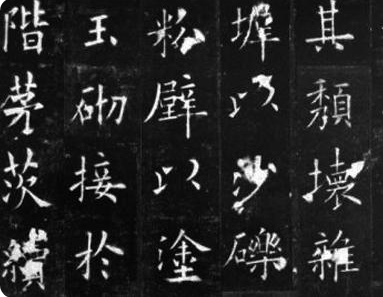 其頹壞雜
墀以沙礫
粉壁以塗
玉砌接於
階茅茨續